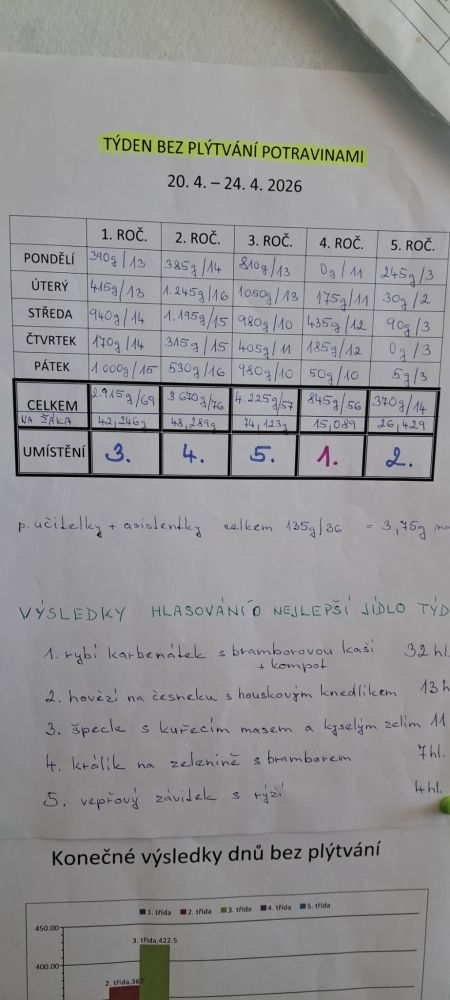 TÝDEN BEZ PLÝTVÁNÍ POTRAVINAMI
20. 4. – 24. 4. 2026
1. ROČ. 2. ROČ. 3. ROČ. 4. ROČ. 5. ROČ.
PONDĚLÍ 390g/13 385g/14 810g/13 0g/11 245g/3
ÚTERÝ 415g/13 1.245g/16 1050g/13 175g/11 30g/2
STŘEDA 940g/14 1.195g/15 980g/10 435g/12 90g/3
ČTVRTEK 170g/14 315g/15 405g/11 185g/12 0g/3
PÁTEK 1.000g/15 530g/16 980g/10 50g/10 5g/3
CELKEM 2.915g/69 3670g/76 4225g/57 845g/56 370g/14
NA ŽÁKA 42,246g 48,289g 74,123g 15,089 26,429
UMÍSTĚNÍ 3. 4. 5. 1. 2.
p. učitelky + asistentky celkem 135g/36 = 3,75g
VÝSLEDKY HLASOVÁNÍ O NEJLEPŠÍ JÍDLO TÝD
1. rybí karbenátek s bramborovou kaší 32 hl.
+ kompot
2. hovězí na česneku s houskovým knedlíkem 13 h
3. špecle s kuřecím masem a kyselým zelím 11
4. králík na zelenině s bramborem 7 hl.
5. vepřový závitek s rýží 4 hl.
Konečné výsledky dnů bez plýtvání
1. třída 2. třída 3. třída 4. třída 5. třída
450.00
3. třída,422.5
400.00
2. třída,367